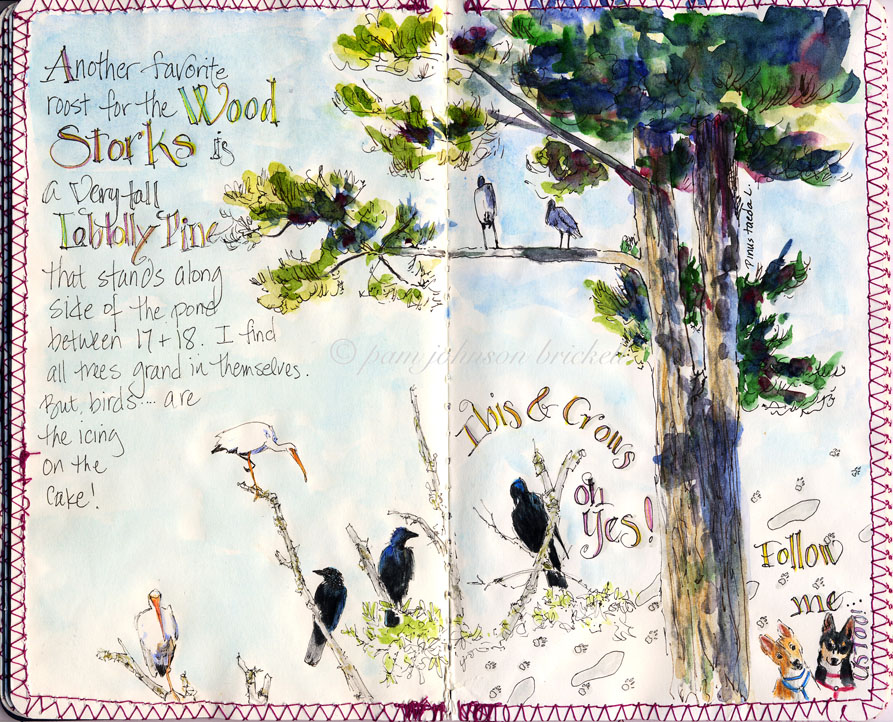 Another favorite
roost for the Wood
Storks is
a very tall
Loblolly Pine
that stands along
side of the pond
between 17 + 18. I find
all trees grand in themselves.
But, birds.... are
the icing
on the
cake!
Pinus taeda L.
© pam johnson brickell
Ibis & Crows
oh
Yes!
Follow
me...
us too!